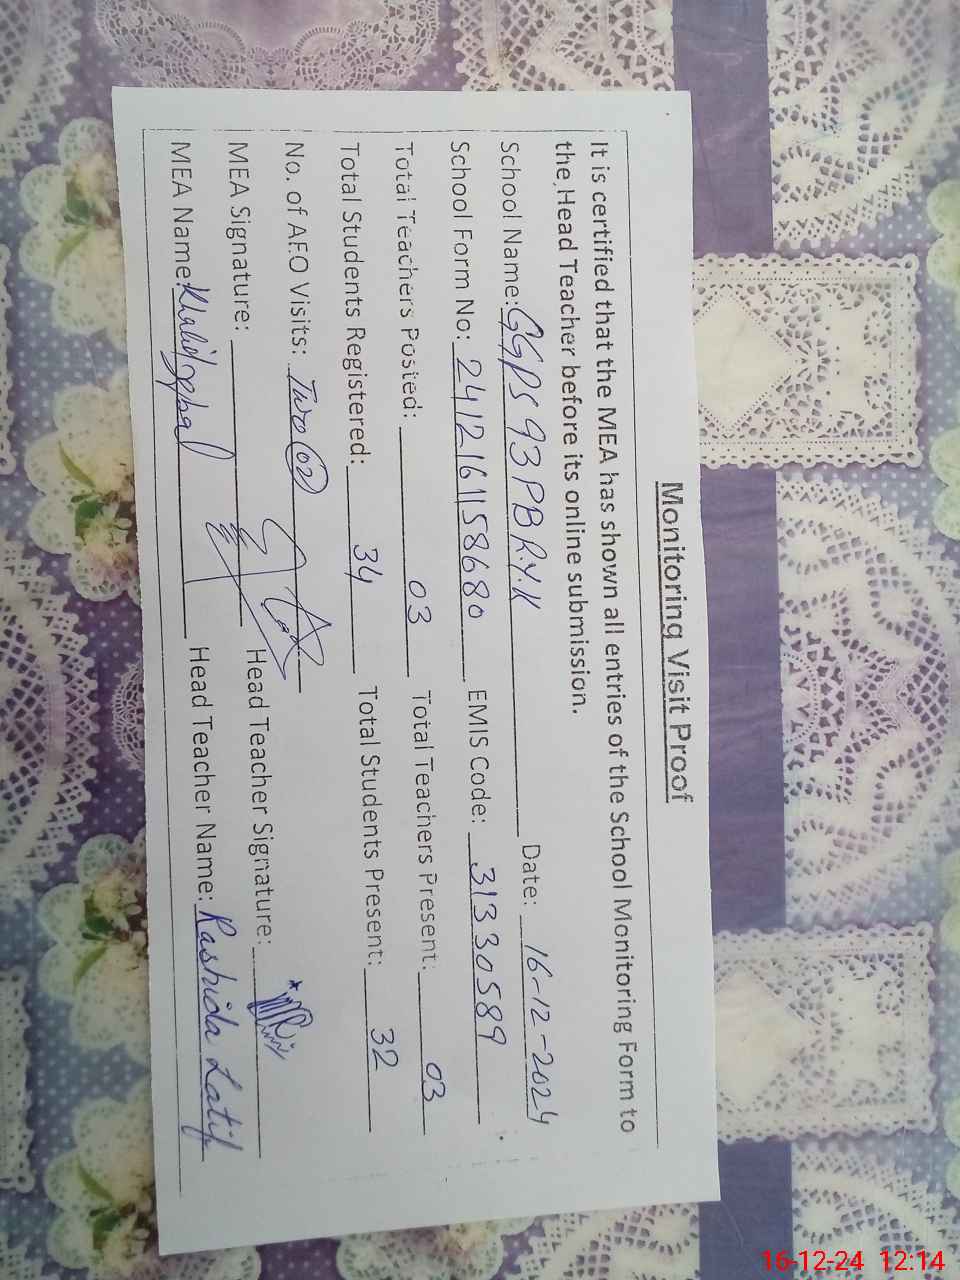 Monitoring Visit Proof
It is certified that the MEA has shown all entries of the School Monitoring Form to
the Head Teacher before its online submission.
School Name: GGPS 93 PB R.Y.K Date: 16-12-2024
School Form No: 2412161158680 EMIS Code: 31330589
Total Teachers Posted: 03 Total Teachers Present: 03
Total Students Registered: 34 Total Students Present: 32
No. of AEO Visits: Two 02
MEA Signature: Head Teacher Signature:
MEA Name: Khalid Iqbal Head Teacher Name: Rashida Latif
16-12-24 12:14